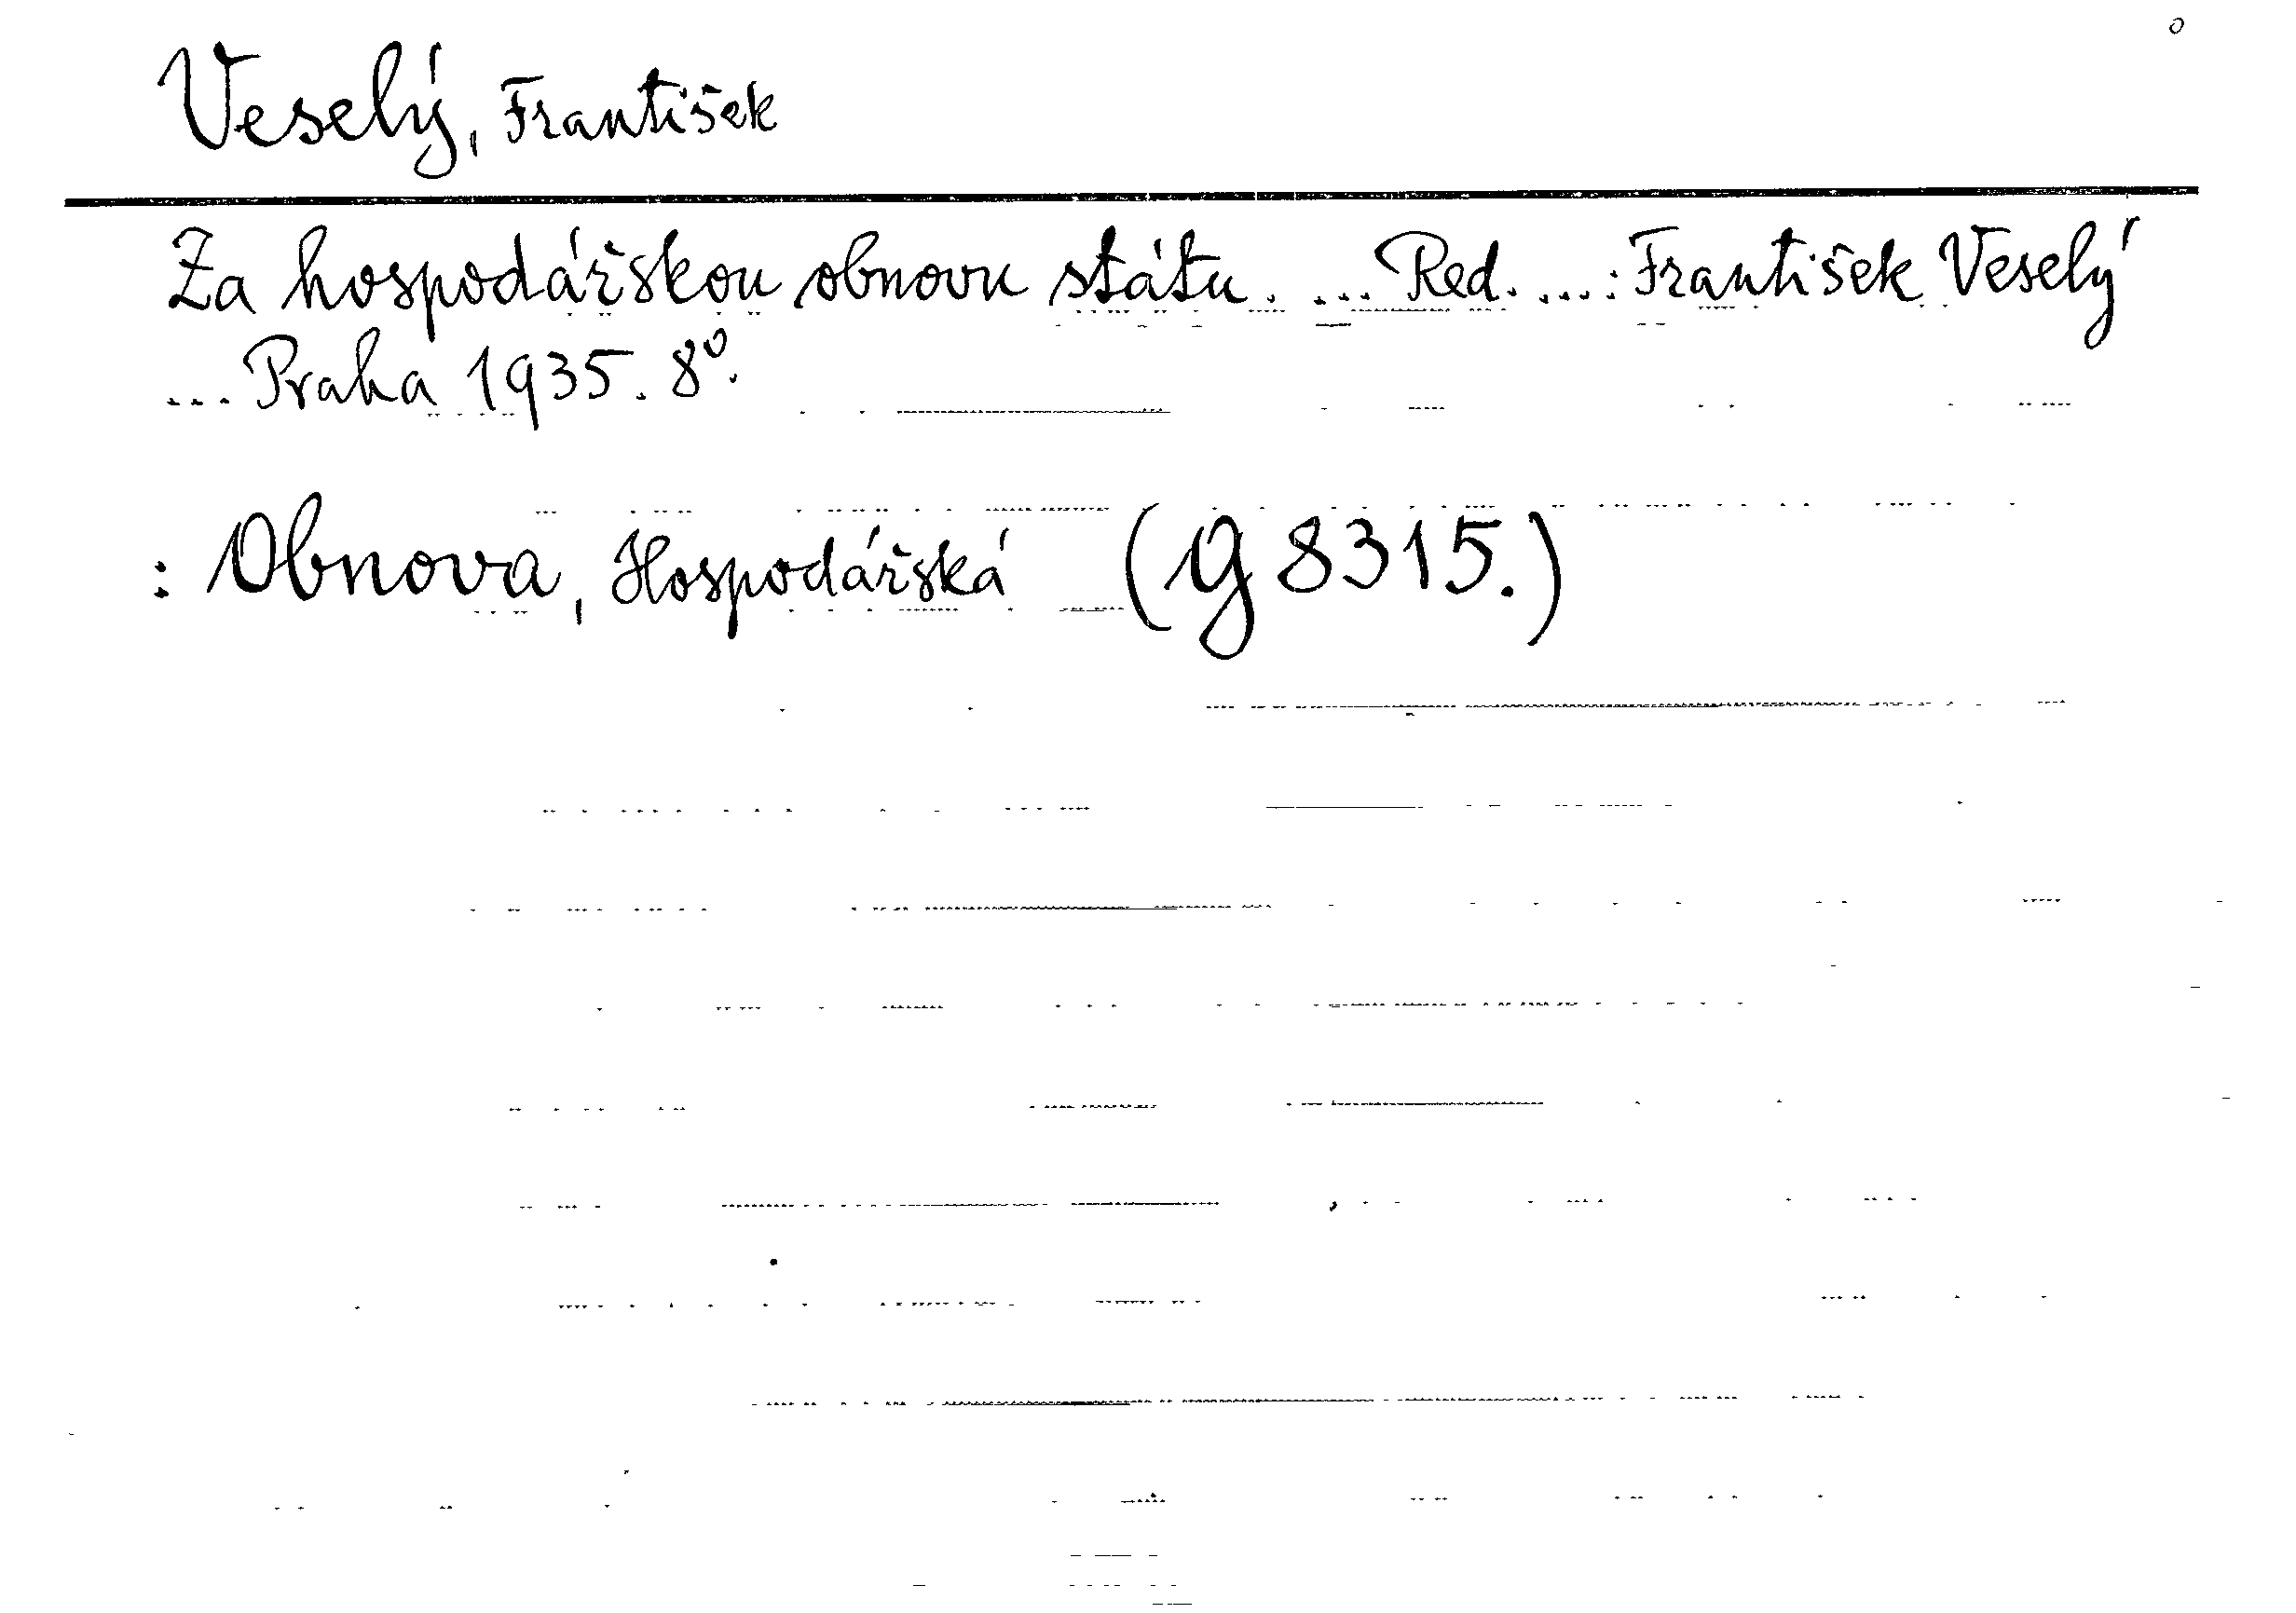 o
Veselý, František
Za hospodářskou obnovu státu. ... Red. ...: František Veselý
... Praha 1935. 8º.
: Obnova, Hospodářská (g 8315.)